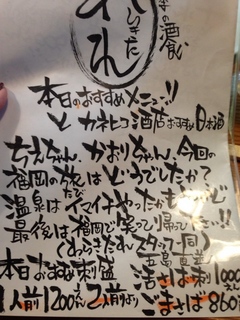 幸の酒蔵
いしきた
れ
本日のおすすめメニュー!!
と カネヒコ酒店おすすめ日本酒
ちえちゃん、かおりちゃん、今回の
福岡の旅はどうでしたか?
温泉はイマイチやったかもやけど
最後は福岡で笑って帰って下さい!!
スタッフ一同)
本日おすすめ刺盛
1人前1200えん 2人前より
五島
活さば刺1000えん
ごまさば860えん